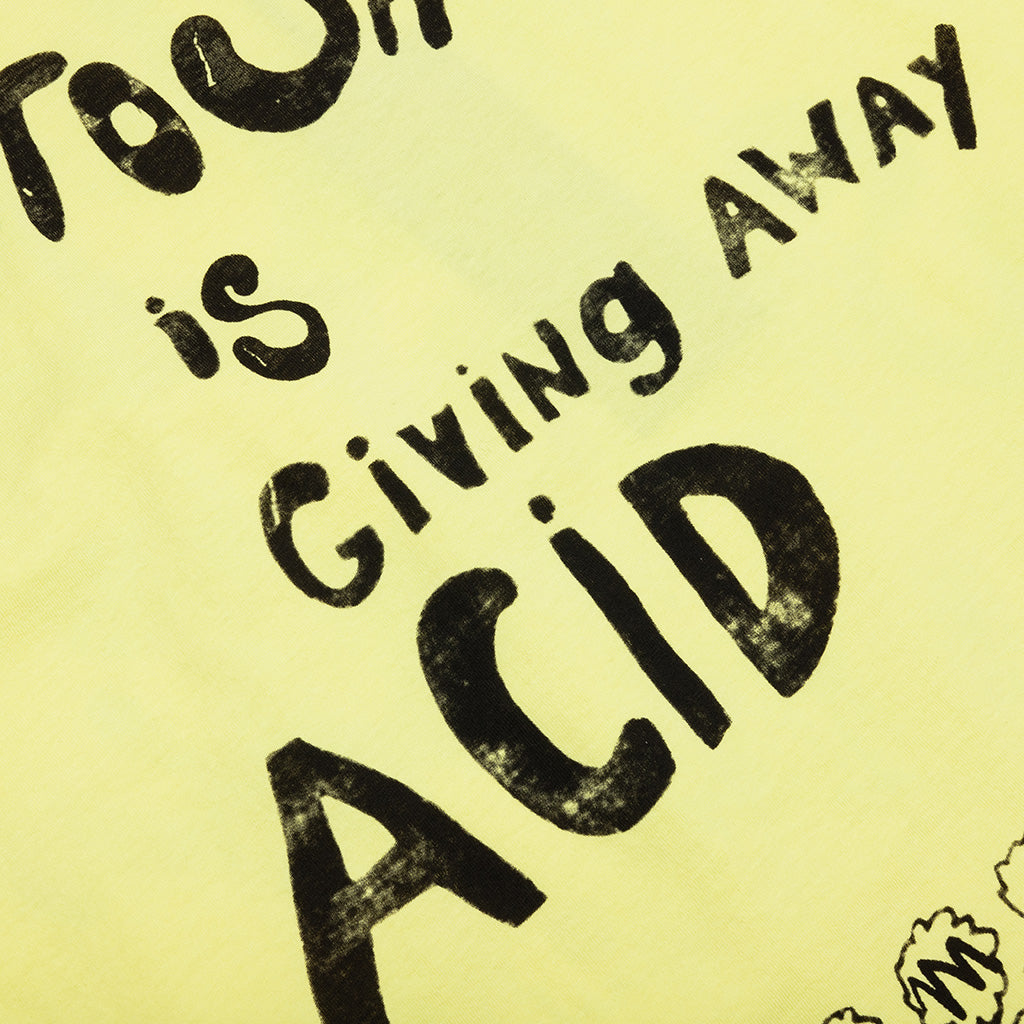 is
GiviNg AWAY
ACiD
M